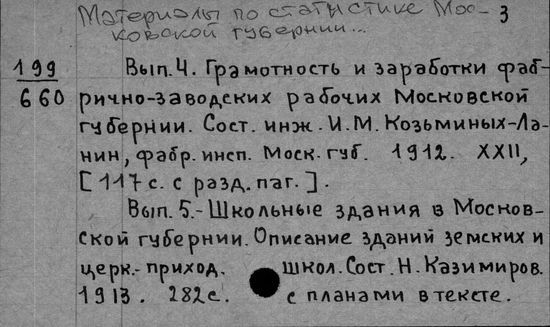 Материалы по статистике Мос- 3
ковской губернии...
199 Вып. 4. Грамотность и заработки фаб-
660 рично-заводских рабочих Московской
губернии. Сост. инж. И.М. Козьминых-Ла-
нин, фабр. инсп. Моск. губ. 1912. XXII,
[117 с. с разд. паг.].
Вып. 5.- Школьные здания в Москов-
ской губернии. Описание зданий земских и
церк.- приход. школ. Сост. Н. Казимиров.
1913. 282с. с планами в тексте.